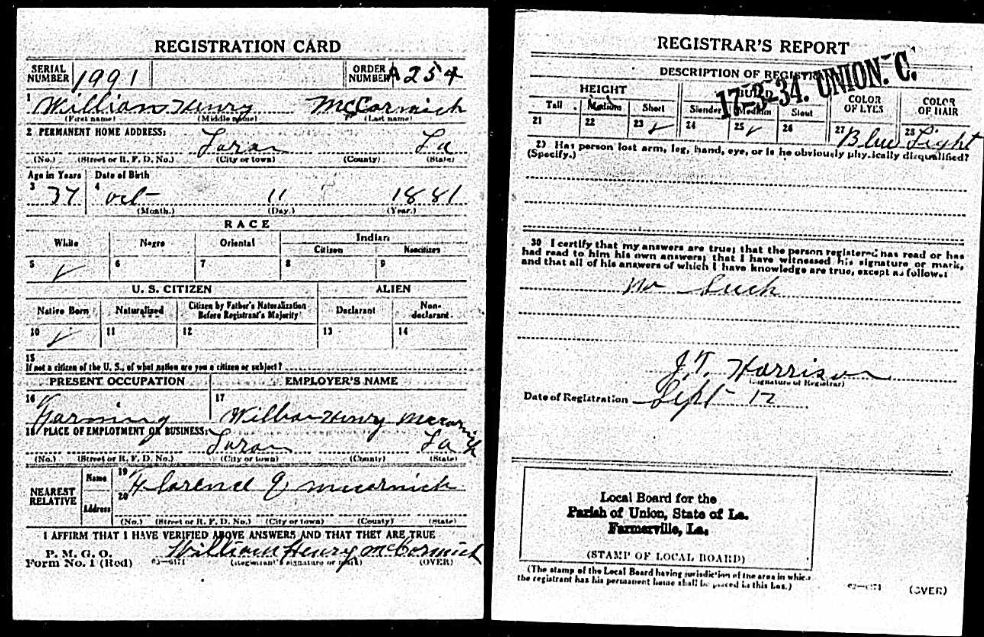 REGISTRATION CARD
SERIAL NUMBER 1991 ORDER NUMBER A254
1 William Henry McCormick
(First name) (Middle name) (Last name)
2 PERMANENT HOME ADDRESS: La
(No.) (Street or R. F. D. No.) (City or town) (County) (State)
Age in Years Date of Birth
3 37 4 Oct 11 1881
(Month.) (Day.) (Year.)
RACE
White Negro Oriental Indian
Citizen Noncitizen
5 ✓ 6 7 8 9
U. S. CITIZEN ALIEN
Native Born Naturalized Citizen by Father's Naturalization Before Registrant's Majority Declarant Non-declarant
10 ✓ 11 12 13 14
15
If not a citizen of the U. S., of what nation are you a citizen or subject?
PRESENT OCCUPATION EMPLOYER'S NAME
16 Farming 17 William Henry McCormick
18 PLACE OF EMPLOYMENT OR BUSINESS:
La
(No.) (Street or R. F. D. No.) (City or town) (County) (State)
NEAREST RELATIVE Name 19 Florence McCormick
Address 20
(No.) (Street or R. F. D. No.) (City or town) (County) (State)
I AFFIRM THAT I HAVE VERIFIED ABOVE ANSWERS AND THAT THEY ARE TRUE
P. M. G. O.
Form No. 1 (Red) 03—6171 William Henry McCormick
(Registrant's signature or mark) (OVER)
REGISTRAR'S REPORT
17-2-34. UNION. C.
DESCRIPTION OF REGISTRANT
HEIGHT BUILD COLOR OF EYES COLOR OF HAIR
Tall Medium Short Slender Medium Stout
21 22 23 ✓ 24 25 ✓ 26 27 Blue 28 Light
29 Has person lost arm, leg, hand, eye, or is he obviously physically disqualified?
(Specify.)
30 I certify that my answers are true; that the person registered has read or has
had read to him his own answers; that I have witnessed his signature or mark,
and that all of his answers of which I have knowledge are true, except as follows:
No Such
J. T. Harrison
(Signature of Registrar)
Date of Registration Sept 12
Local Board for the
Parish of Union, State of La.
Farmerville, La.
(STAMP OF LOCAL BOARD)
(The stamp of the Local Board having jurisdiction of the area in which
the registrant has his permanent home shall be placed in this box.)
03—6171 (OVER)